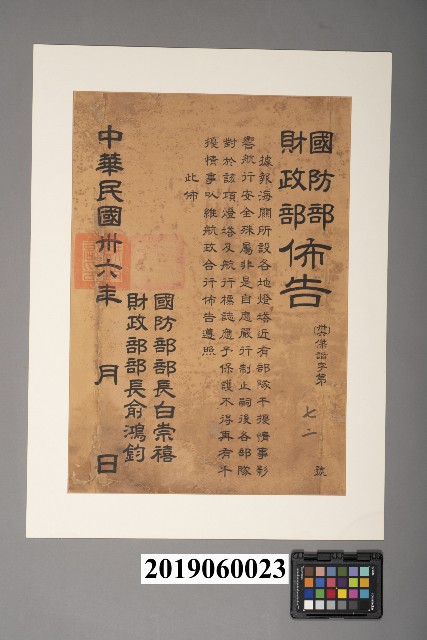 國防部
財政部
佈告
據報海關所設各地燈塔近有部隊干擾情事影
響航行安全殊屬非是自應嚴行制止嗣後各部隊
對於該項燈塔及航行標誌應予保護不得再有干
擾情事以維航政合行佈告遵照
此佈
國防部部長白崇禧
財政部部長俞鴻鈞
中華民國卅六年 月 日
字第
七二
號
2019060023